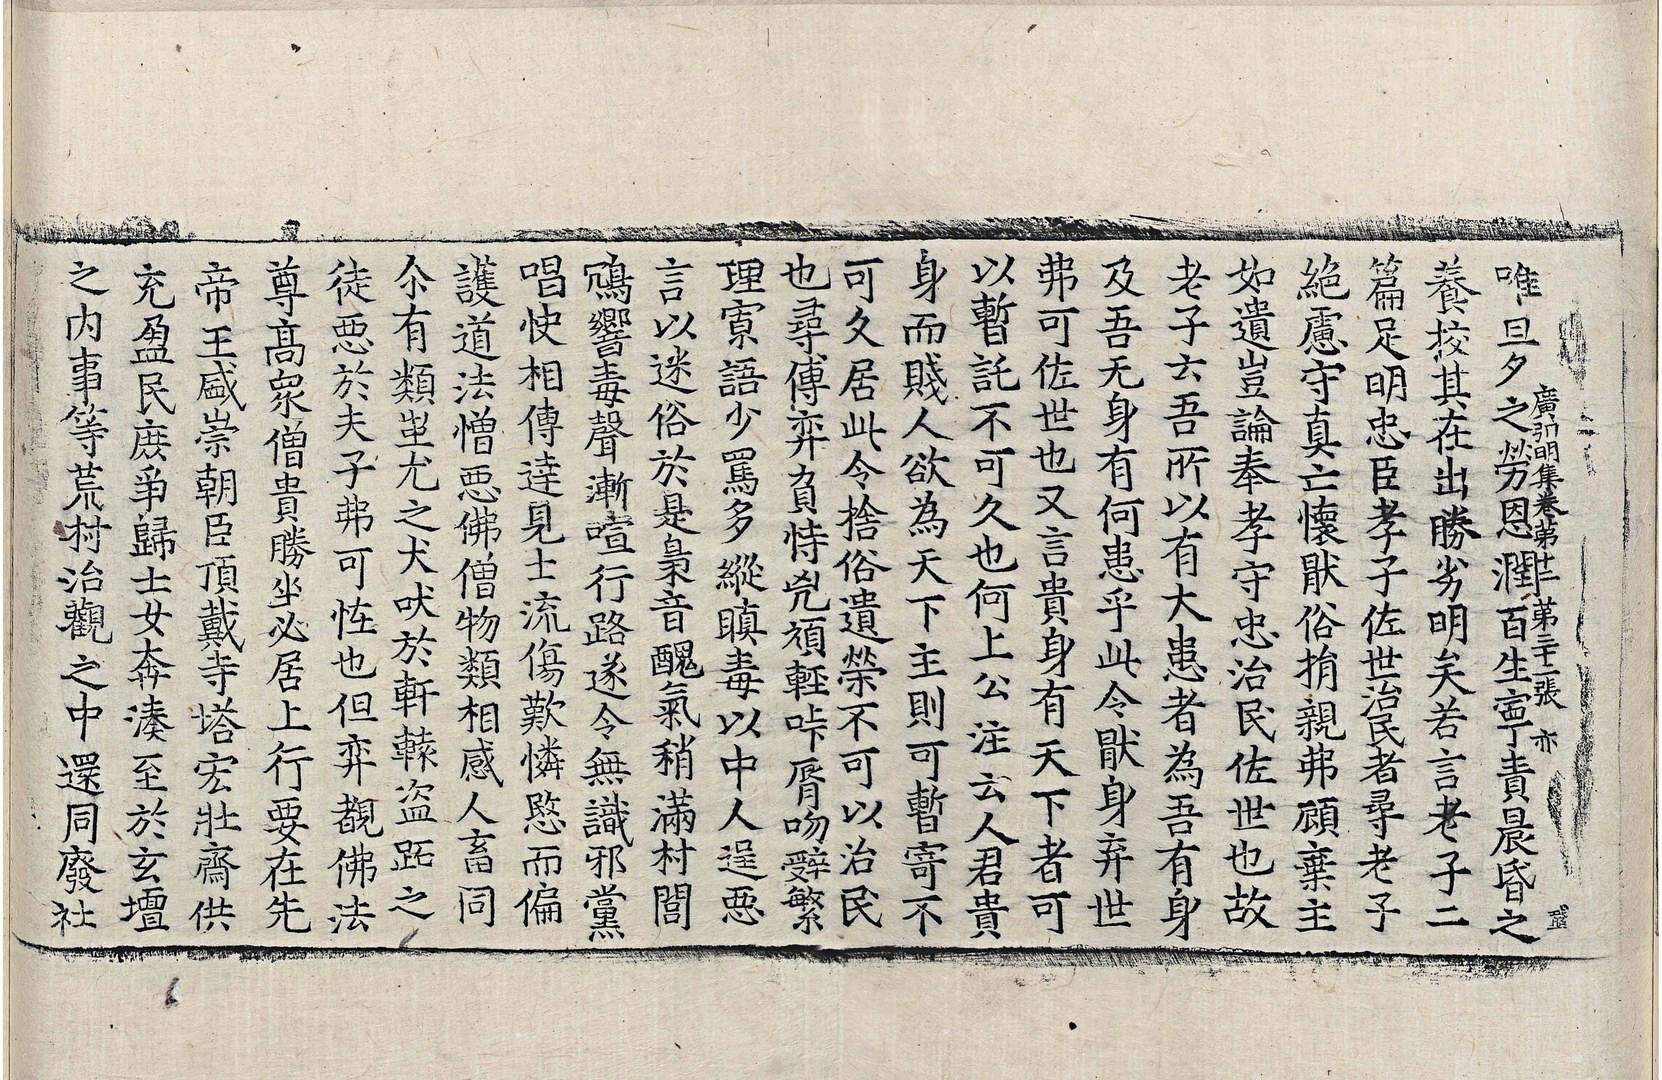 廣弘明集卷第十三 第三十二張 亦
唯旦夕之勞恩潤百生寧責晨昏之
養挍其在出勝劣明矣若言老子二
篇足明忠臣孝子佐世治民者尋老子
絕慮守真亡懷猒俗捐親弗顧棄主
如遺豈論奉孝守忠治民佐世也故
老子云吾所以有大患者為吾有身
及吾无身有何患乎此令猒身弃世
弗可佐世也又言貴身有天下者可
以暫託不可久也何上公注云人君貴
身而賤人欲為天下主則可暫寄不
可久居此令捨俗遺榮不可以治民
也尋傅弈負恃兇頑輕咔脣吻辭繁
理寡語少罵多縱瞋毒以中人逞惡
言以迷俗於是梟音醜氣稍滿村閭
鴆響毒聲漸喧行路遂令無識邪黨
唱快相傳達見士流傷歎憐愍而偏
護道法憎惡佛僧物類相感人畜同
尒有類蚩尤之犬吠於軒轅盜跖之
徒惡於夫子弗可恠也但弈覩佛法
尊高眾僧貴勝坐必居上行要在先
帝王盛崇朝臣頂戴寺塔宏壯齋供
充盈民庶爭歸士女奔湊至於玄壇
之內事等荒村治觀之中還同廢社